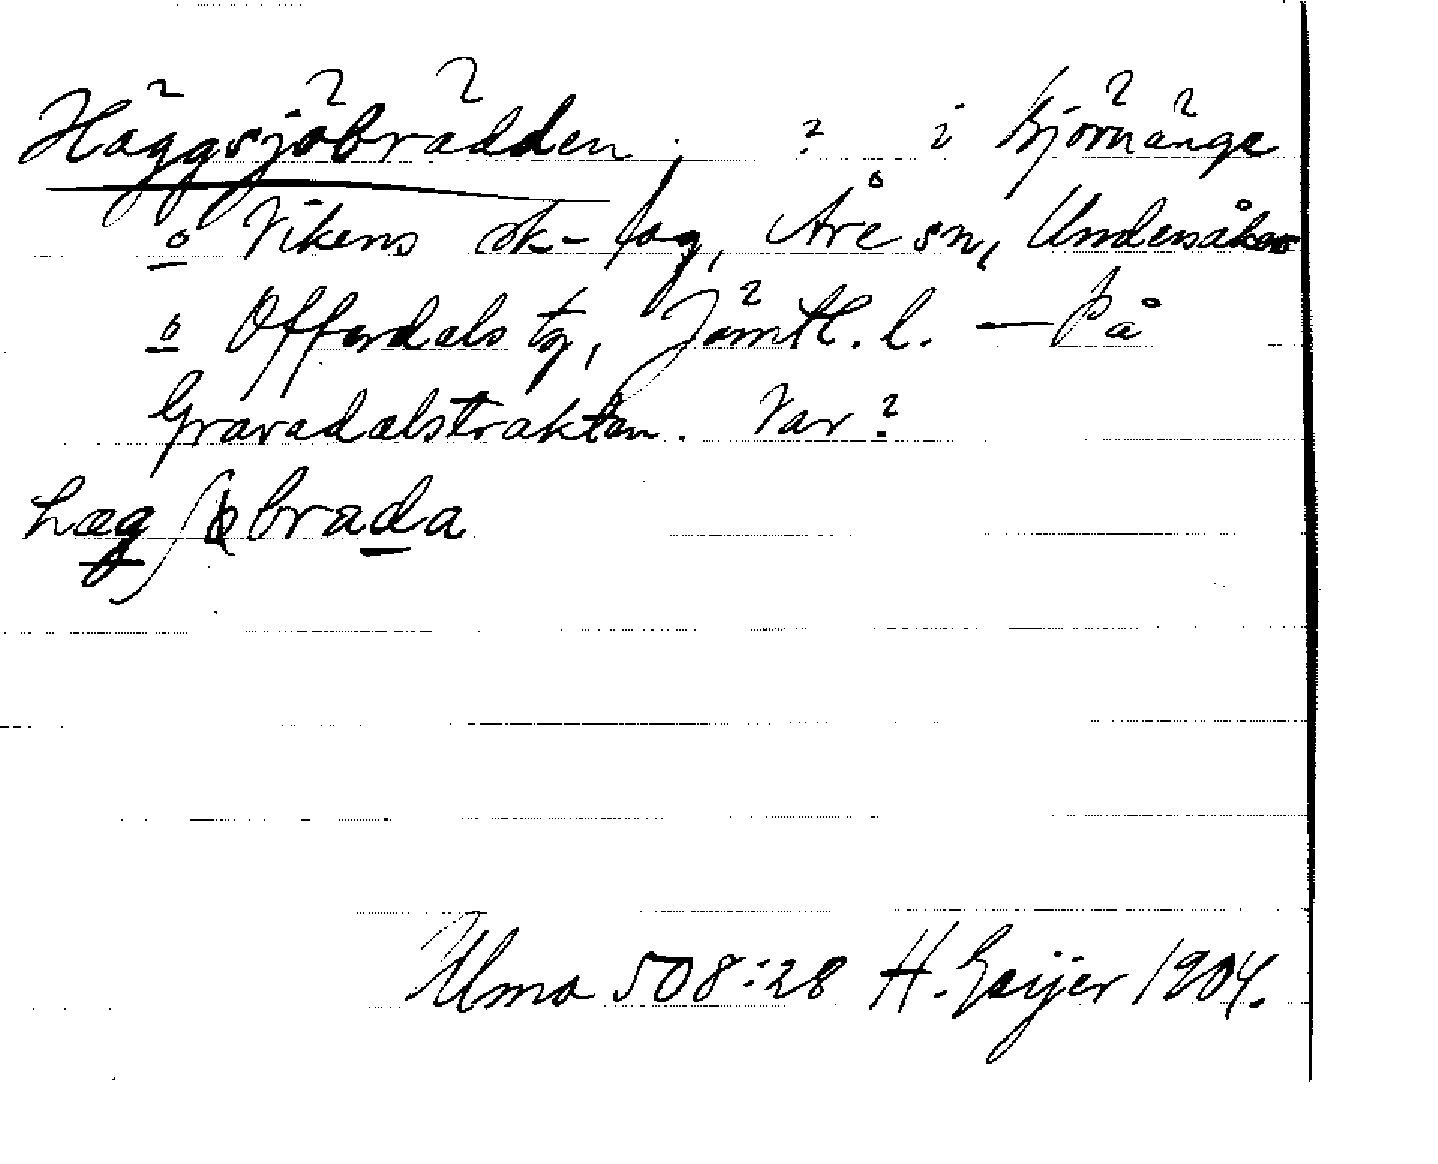 Häggsjöbrädden. ? i Björnänge
o Vikens sk-lag, Åre sn, Undersåkers
o Offerdals tg, Jämtl. l. — På
Gravadalstrakten. Var?
hæg ʃɵ brada
Ulma 508:28 H. Geijer 1904.